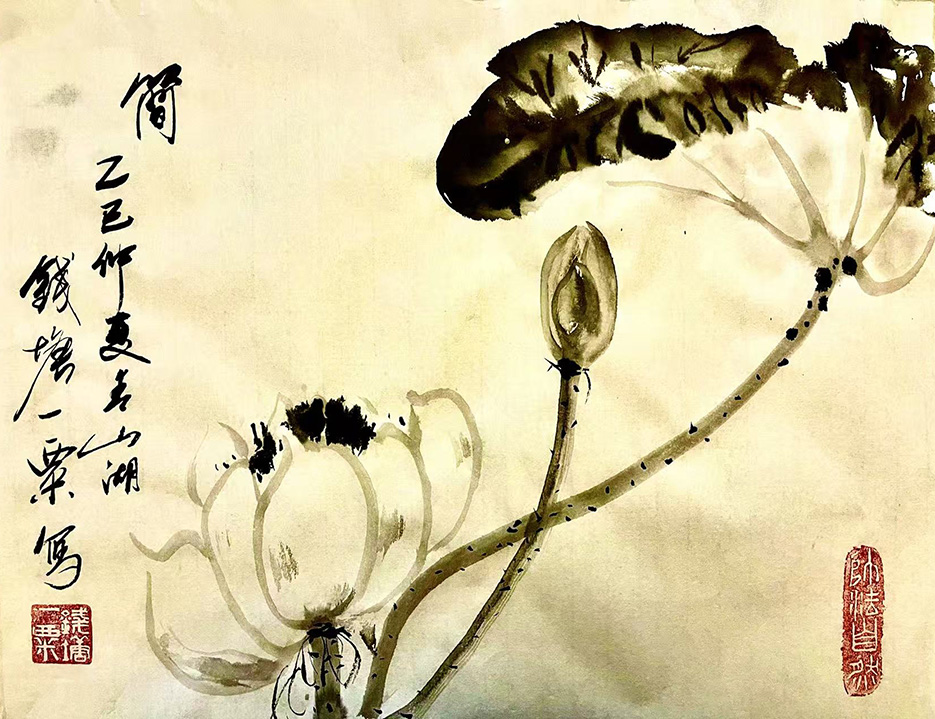 簡
乙巳仲夏山湖
錢塘一粟寫
錢塘
一粟
師法自然